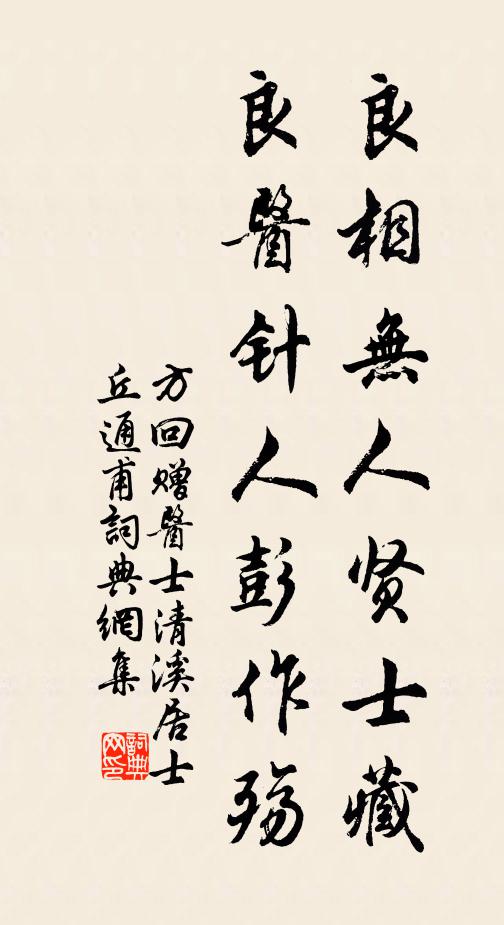 良相無人贤士藏
良醫针人彭作殇
方回赠醫士清溪居士
丘通甫詞典網集
詞典网印